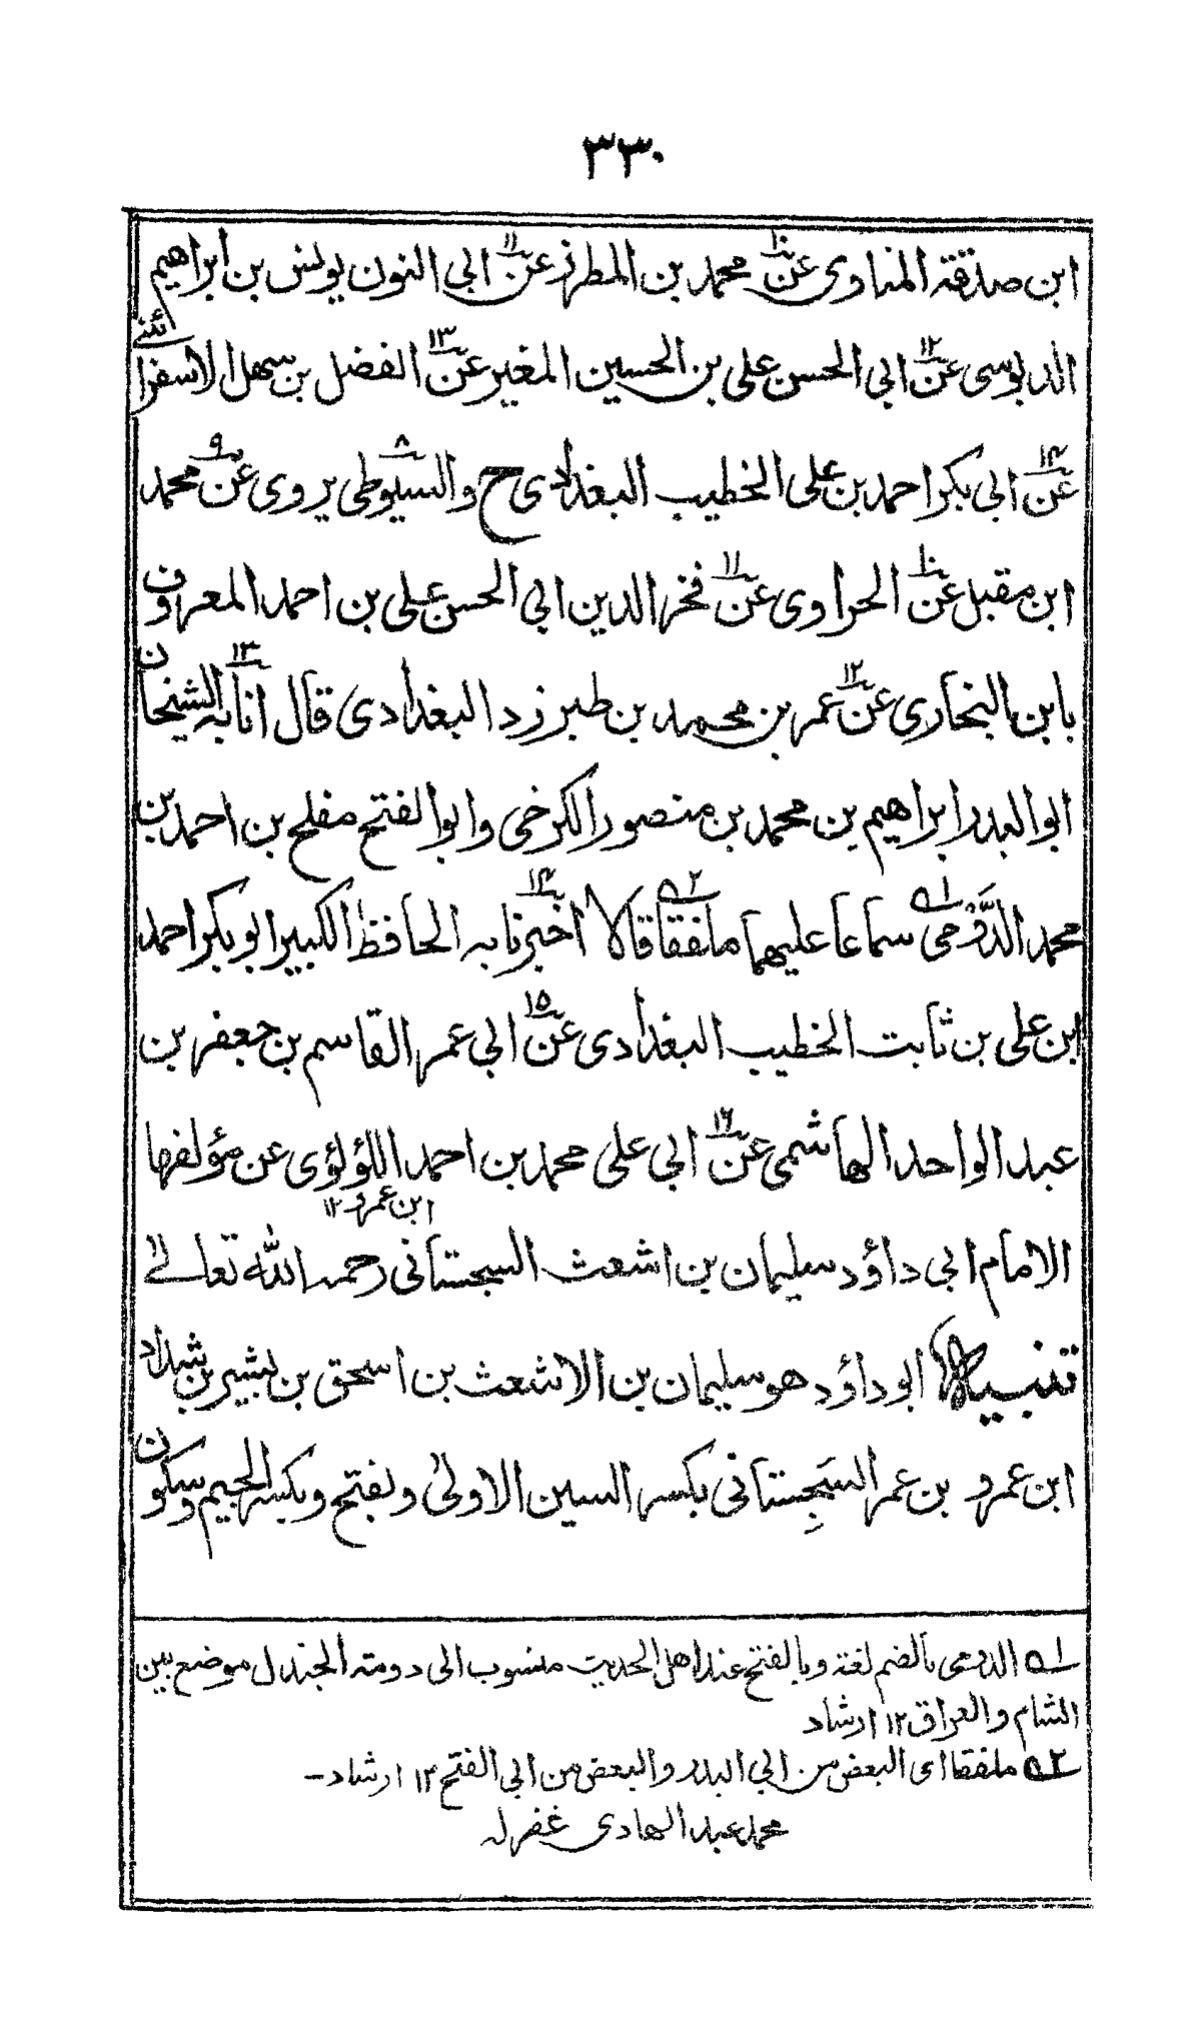 ٣٣٠
ابن صدقة المناوی عن١٠ محمد بن المطرز عن١١ ابی النون یونس بن ابراهیم
الدبوسی عن١٢ ابی الحسن علی بن الحسین المغیر عن١٣ الفضل بن سهل الاسفرائنی
عن١٤ ابی بکر احمد بن علی الخطیب البغدادی ح والسیوطی٨ یروی عن٩ محمد
ابن مقبل عن١٠ الحراوی عن١١ فخر الدین ابی الحسن علی بن احمد المعروف
بابن البخاری عن١٢ عمر بن محمد بن طبرزد البغدادی قال انا١٣ به الشیخان
ابو البدر ابراهیم بن محمد بن منصور الکرخی وابو الفتح مفلح بن احمد بن
محمد الدَّوْمی ١ه سماعا علیهما ملفقا ٢ه قالا اخبرنا١٤ به الحافظ الکبیر ابو بکر احمد
ابن علی بن ثابت الخطیب البغدادی عن١٥ ابی عمر القاسم بن جعفر بن
عبد الواحد الهاشمی عن١٦ ابی علی محمد بن احمد اللؤلؤی عن مؤلفها
ابن عمرو ١٢
الامام ابی داؤد سلیمان بن اشعث السجستانی رحمه الله تعالیٰ
تنبیه ابو داؤد هو سلیمان بن الاشعث بن اسحق بن بشیر بن شداد
ابن عمرو بن عمر السَجِستانی بکسر السین الاولیٰ وبفتح وبکسر الجیم وسکون
١ه الدومی بالضم لغة وبالفتح عند اهل الحدیث منسوب الی دومة الجندل موضع بین
الشام والعراق ١٢ ارشاد
٢ه ملفقا ای البعض من ابی البدر والبعض من ابی الفتح ١٢ ارشاد-
محمد عبد الهادی غفرله